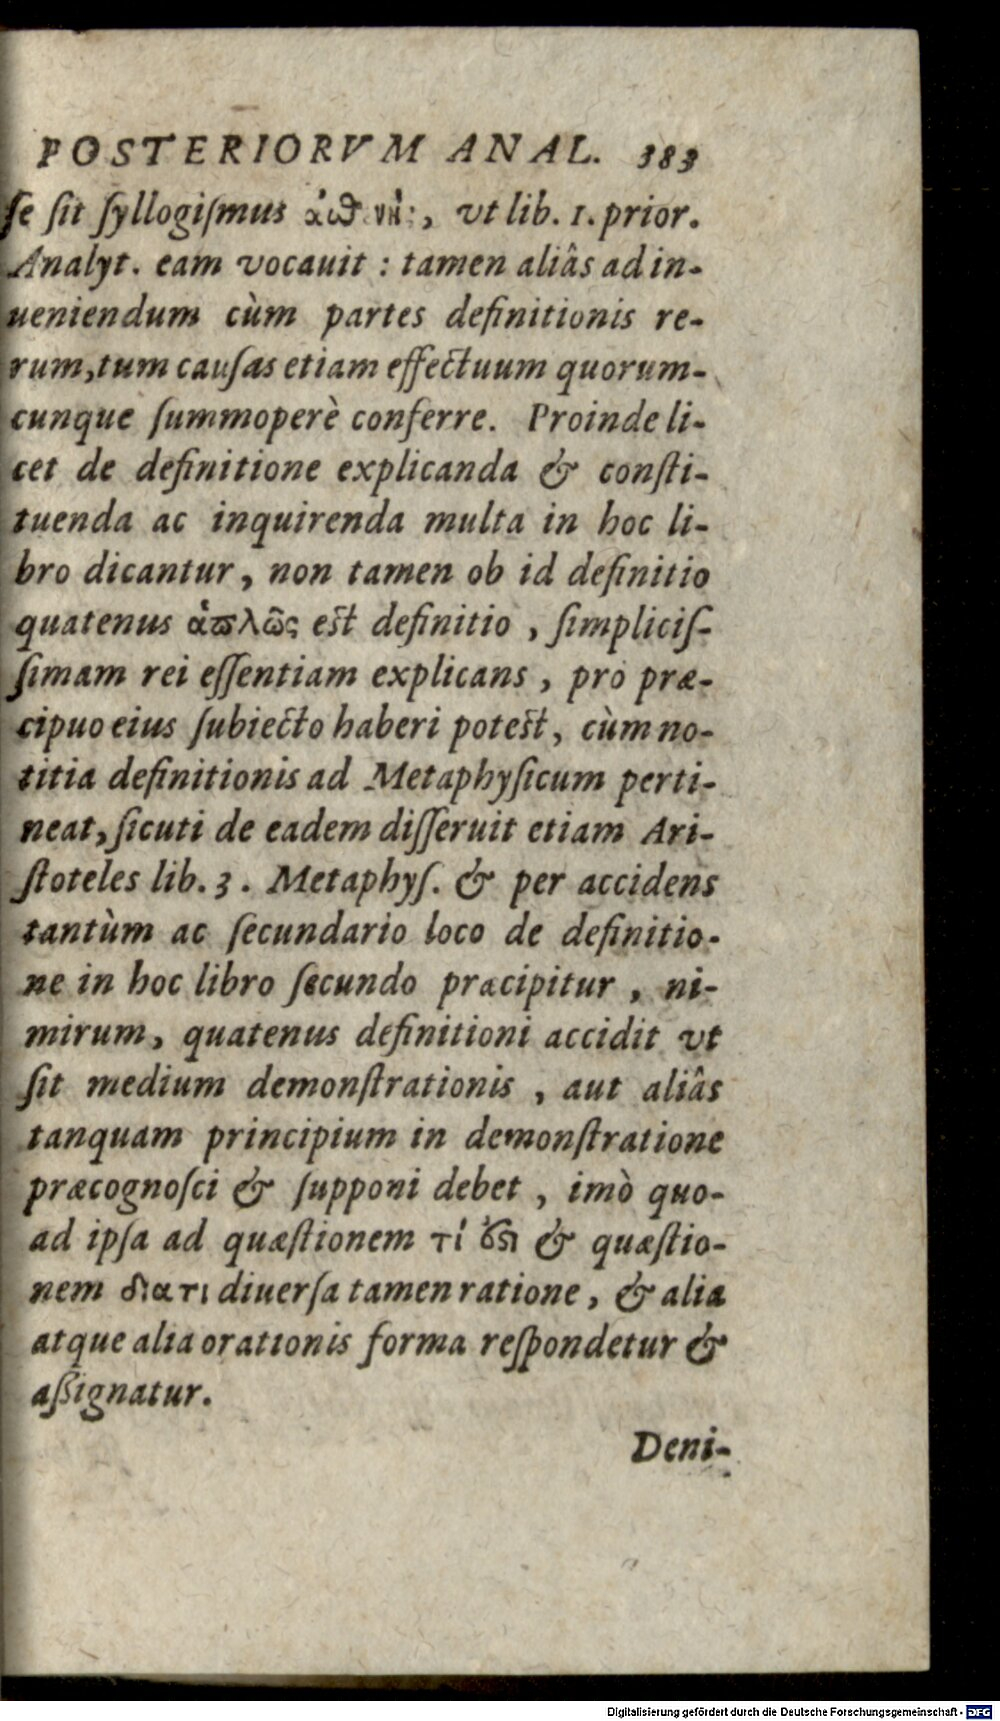 POSTERIORVM ANAL. 383
ſe ſit ſyllogiſmus ἀσθενὴς, vt lib. 1. prior.
Analyt. eam vocauit : tamen aliâs ad in-
ueniendum cùm partes definitionis re-
rum, tum cauſas etiam effectuum quorum-
cunque ſummoperè conferre. Proinde li-
cet de definitione explicanda & conſti-
tuenda ac inquirenda multa in hoc li-
bro dicantur, non tamen ob id definitio
quatenus ἁπλῶς est definitio, ſimpliciſ-
ſimam rei eſſentiam explicans, pro præ-
cipuo eius ſubiecto haberi potest, cùm no-
titia definitionis ad Metaphyſicum perti-
neat, ſicuti de eadem diſſeruit etiam Ari-
ſtoteles lib. 3. Metaphyſ. & per accidens
tantùm ac ſecundario loco de definitio-
ne in hoc libro ſecundo præcipitur, ni-
mirum, quatenus definitioni accidit vt
ſit medium demonſtrationis, aut aliâs
tanquam principium in demonſtratione
præcognoſci & ſupponi debet, imò quo-
ad ipſa ad quæſtionem τί ἐστι & quæſtio-
nem διατι diuerſa tamen ratione, & alia
atque alia orationis forma reſpondetur &
aſsignatur.
Deni-
Digitalisierung gefördert durch die Deutsche Forschungsgemeinschaft - DFG